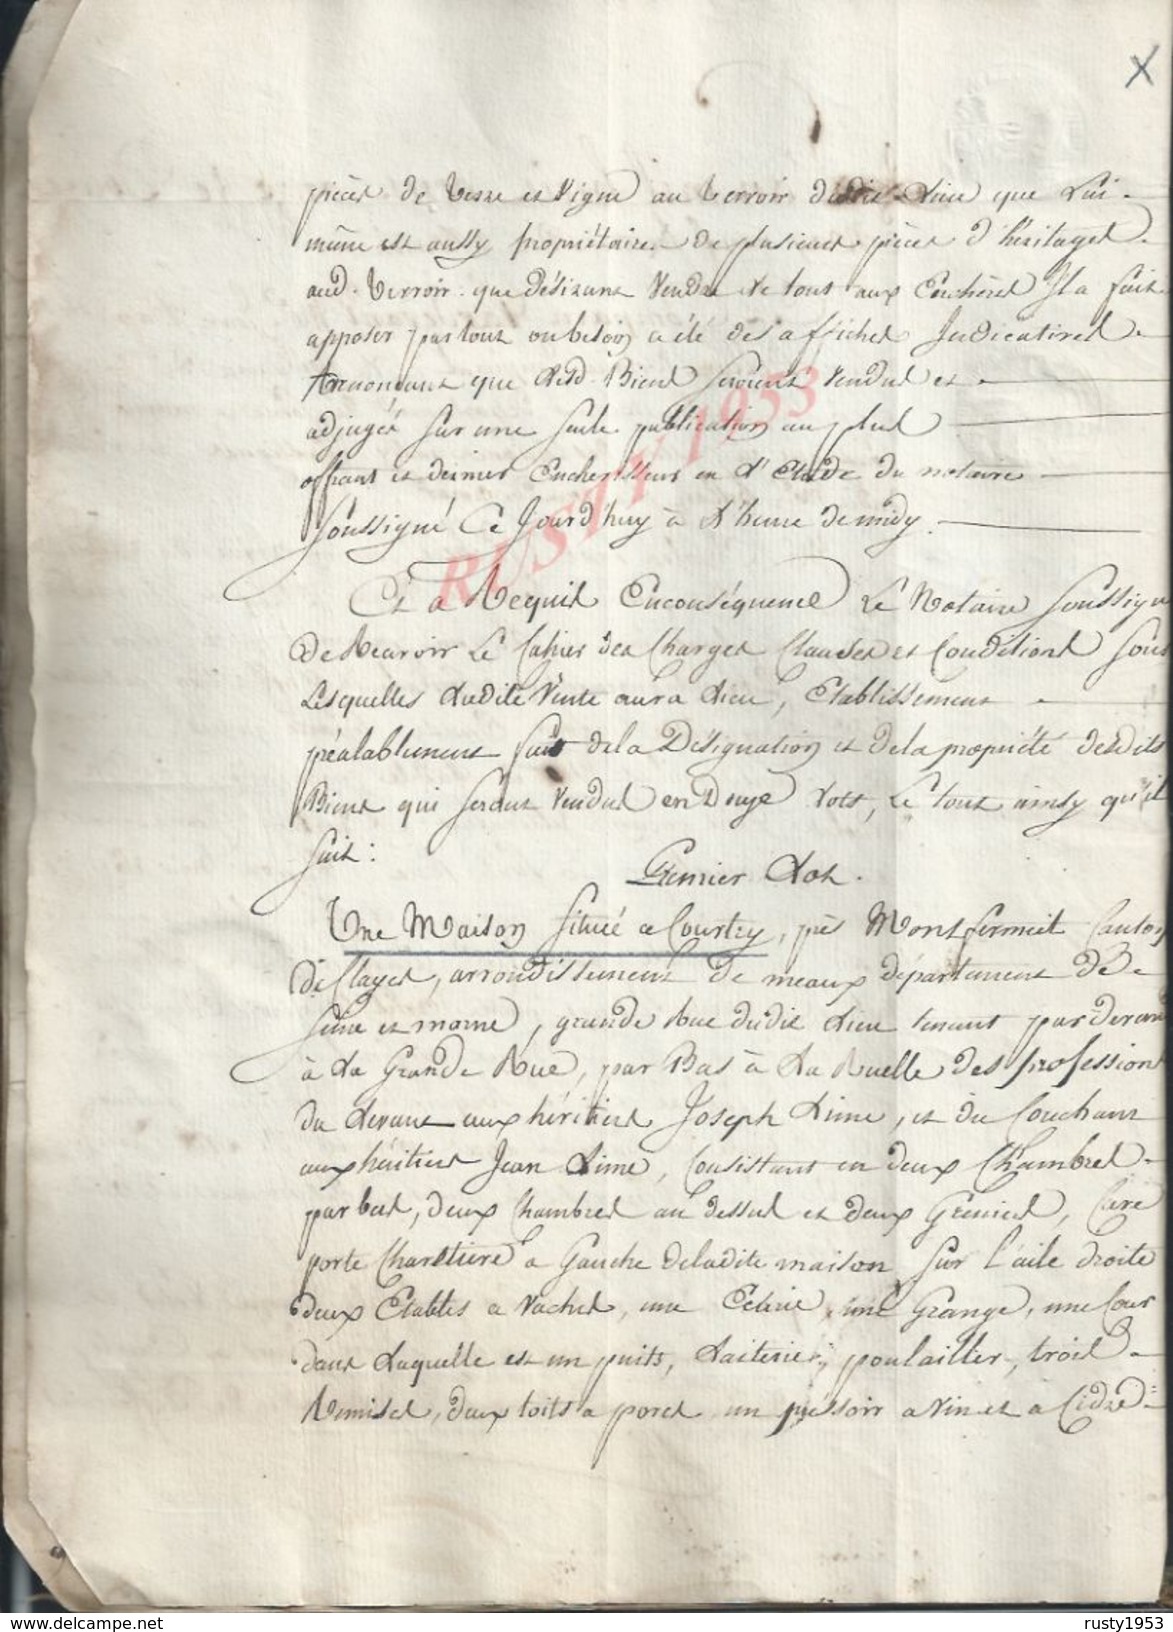 X
pièces de terre et vigne au terroir dudit Lieu que Lui-
même est aussy propriétaire de plusieurs pièces d'héritages
aud. terroir que désirant vendre le tout aux Enchères Il a fait
apposer partout ou besoin a été des affiches Indicatives
Annoncant que Lesd. Biens seroient vendus et
adjugés sur une seule publication au plus
offrant et dernier Encherisseur en L'Etude du notaire
soussigné Ce Jourd'huy à L'heure de midy.
Et a Requis Enconséquence Le Notaire soussigné
de Recevoir Le Cahier des Charges Clauses et Conditions sous
Lesquelles Ladite Vente aura Lieu, Etablissement
préalablement fait de la Désignation et de la propriété desdits
Biens qui seront vendus en Douze Lots, Le tout ainsy qu'il
suit :
Premier Lot.
Une Maison située a Courtry, près Montfermeil Canton
de Clayes, arrondissement de meaux département de
seine et marne, grande Rue dudit Lieu tenant par devant
à La Grande Rue, par Bas à La Ruelle des profession
du Levant aux héritiers Joseph Lime, et du Couchant
aux héritiers Jean Lime, Consistant en deux Chambres
par bas, deux Chambres au dessus et deux Greniers, Cave
porte Charetiere a Gauche de ladite maison sur L'aile droite
deux Etables a vaches, une Ecurie, une Grange, une Cour
dans Laquelle est un puits, Laiterie, poulailler, trois
Remises, deux toits a porcs un préssoir a vin et a Cidre
RUSTY 1953
www.delcampe.net
rusty1953